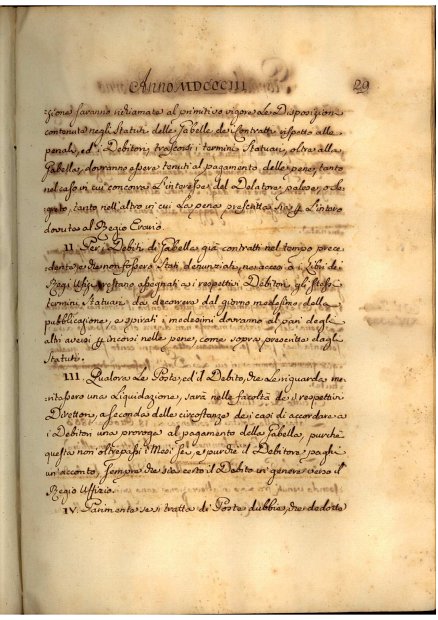 Anno MDCCCIII.
29
zione saranno richiamate al primitivo vigore Le Disposizioni
contenute negli Statuti delle Gabelle de Contratti rispetto alle
penali, ed i Debitori, trascorsi i termini Statuari, oltre alla
Gabella, dovranno essere tenuti al pagamento delle pene, tanto
nel caso in cui concorra L'interesse del Delatore palese, o se-
greto, tanto nell'altro in cui La pena prescritta sia per L'intero
dovuta al Regio Erario.
II. Per i Debiti di Gabelle già contratti nel tempo prece-
dente, e che non fossero Stati denunziati, ne accesi a i Libri de
Regi Ufizi restano assegnati a i respettivi Debitori gli stessi
termini Statuari da decorrere dal giorno medesimo della
pubblicazione, e spirati i medesimi dovranno al pari degli
altri aversi p. incorsi nelle pene, come sopra prescritte dagli
Statuti.
III. Qualora Le Poste, ed il Debito, che Le riguarda, me-
ritassero una Liquidazione, sarà nelle facoltà de respettivi
Direttori, a seconda delle circostanze de i casi di accordare a
i Debitori una proroga al pagamento della Gabella, purchè
questa non oltrepassi i Mesi Sei, e purchè il Debitore paghi
un acconto, sempre che sia certo il Debito in genere verso il
Regio Uffizio.
IV. Parimente se si tratta di Poste dubbie, che dedotte